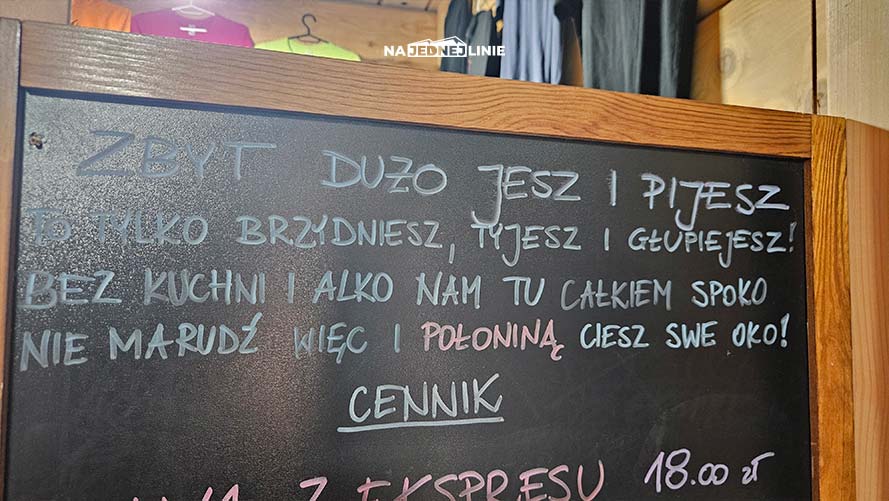 NAJEDNEJLINIE
ZBYT DUŻO JESZ I PIJESZ
TO TYLKO BRZYDNIESZ, TYJESZ I GŁUPIEJESZ!
BEZ KUCHNI I ALKO NAM TU CAŁKIEM SPOKO
NIE MARUDŹ WIĘC I POŁONINĄ CIESZ SWE OKO!
CENNIK
Z EKSPRESU 18.00 zł